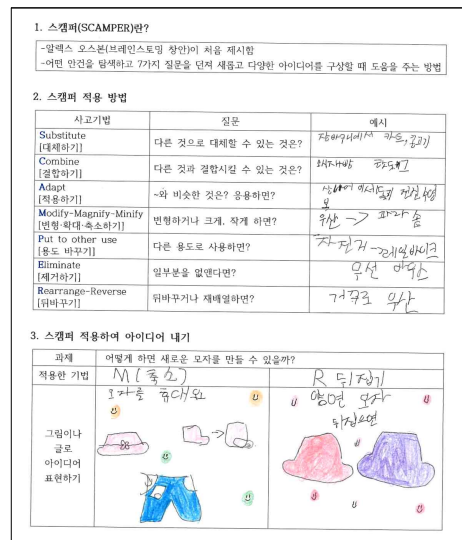 1. 스캠퍼(SCAMPER)란?
-알렉스 오스본(브레인스토밍 창안)이 처음 제시함
-어떤 안건을 탐색하고 7가지 질문을 던져 새롭고 다양한 아이디어를 구상할 때 도움을 주는 방법
2. 스캠퍼 적용 방법
사고기법 질문 예시
Substitute
[대체하기] 다른 것으로 대체할 수 있는 것은? 장바구니에서 카트,
Combine
[결합하기] 다른 것과 결합시킬 수 있는 것은?
Adapt
[적용하기] ~와 비슷한 것은? 응용하면? 전신 수영
복
Modify-Magnify-Minify
[변형·확대·축소하기] 변형하거나 크게, 작게 하면? 우산 -> 파라솔
Put to other use
[용도 바꾸기] 다른 용도로 사용하면? 자전거→레일바이크
Eliminate
[제거하기] 일부분을 없앤다면? 무선 마우스
Rearrange-Reverse
[뒤바꾸기] 뒤바꾸거나 재배열하면? 거꾸로 우산
3. 스캠퍼 적용하여 아이디어 내기
과제 어떻게 하면 새로운 모자를 만들 수 있을까?
적용한 기법 M(축소) R 뒤집기
그림이나
글로
아이디어
표현하기
모자를 휴대용
양면 모자
뒤집으면